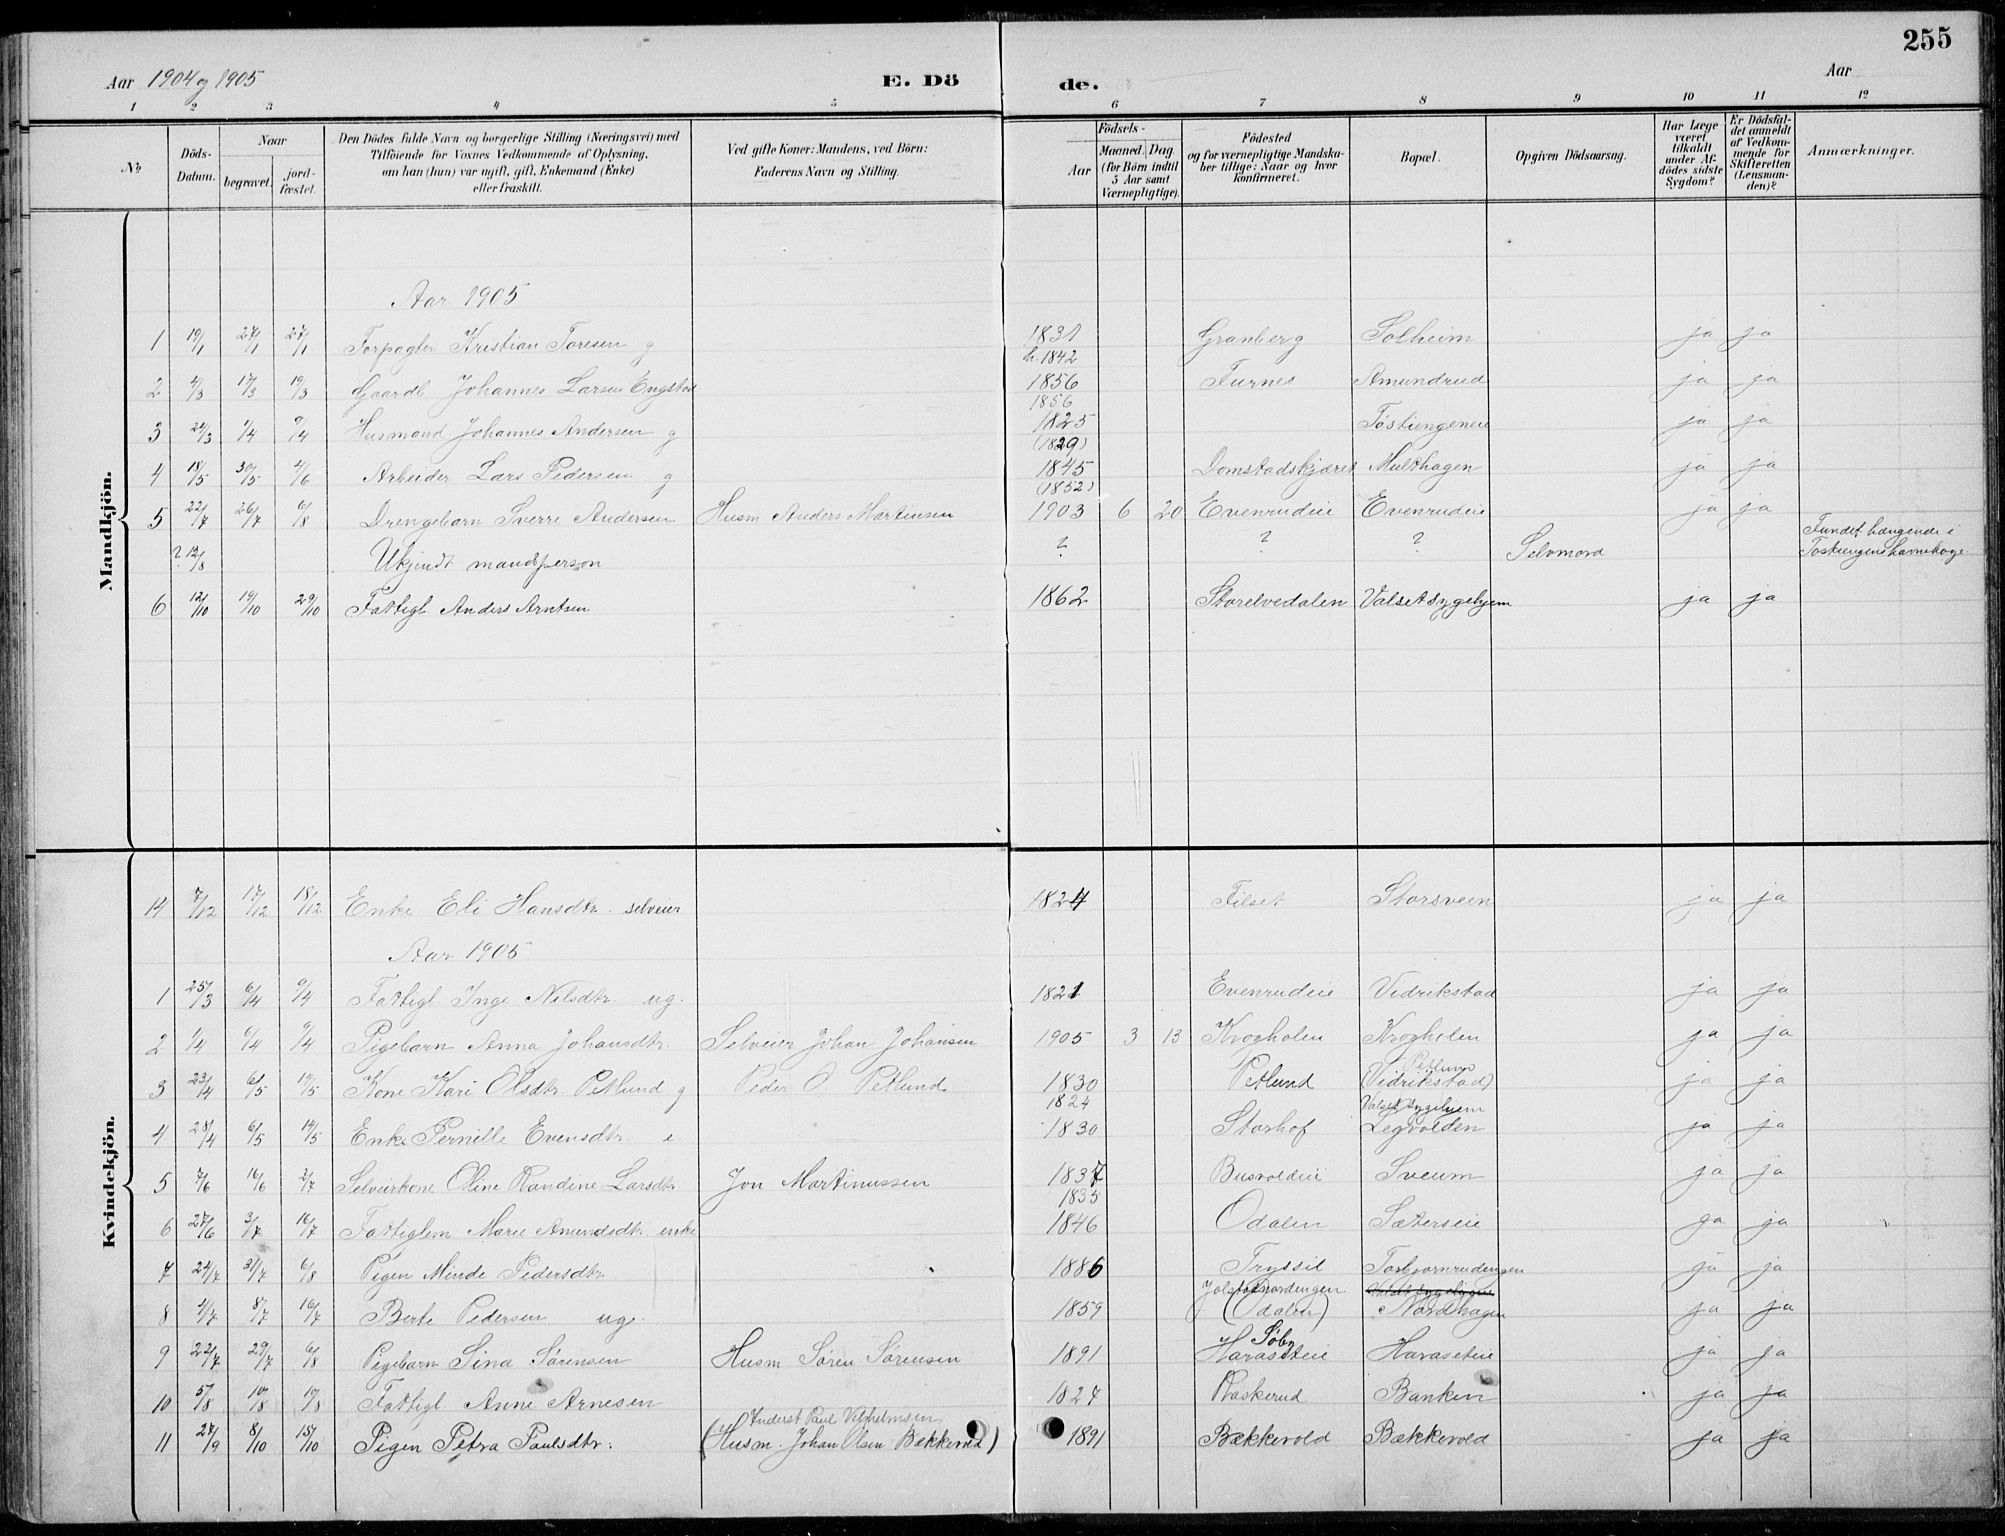 255
Aar 1904 og 1905 E. Dö de. Aar
1 2 3 4 5 6 7 8 9 10 11 12
No Döds-Datum. Naar begravet. jord-fæstet. Den Dödes fulde Navn og borgerlige Stilling (Næringsvei) med Tilföiende for Voxnes Vedkommende af Oplysning, om han (hun) var ugift, gift, Enkemand (Enke) eller fraskilt. Ved gifte Koner: Mandens, ved Börn: Faderens Navn og Stilling. Födsels- Aar Maaned. Dag. (for Börn indtil 5 Aar samt Værnepligtige). Födested og for værnepligtige Mandskaber tillige: Naar og hvor konfirmeret. Bopæl. Opgiven Dödsaarsag. Har Læge været tilkaldt under Afdödes sidste Sygdom? Er Dödsfaldet anmeldt af Vedkommende for Skifteretten (Lensmanden)? Anmærkninger.
Mandkjön.
Aar 1905
1 19/1 27/1 27/1 Forpagter Kristian Toresen g 1831 Granberg Solheim ja ja
h. 1842
2 4/3 17/3 19/3 Gaardb Johannes Larsen Engstad 1856 Furnes Amundrud ja ja
1856
3 24/3 1/4 9/4 Husmand Johannes Andersen g 1825 Tostiengeneie ja ja
(1829)
4 18/5 30/5 4/6 Arbeider Lars Pedersen g 1845 Domstadskjæret Multhagen ja ja
(1852)
5 22/7 26/7 6/8 Drengebarn Sverre Andersen Husm Anders Martinsen 1903 6 20 Evenrudeie Evenrudeie ja ja
? 12/8 Ukjendt mandsperson ? ? ? Selvmord Fundet hængende i
Tostiengens havnehage
6 12/10 19/10 29/10 Fattigl Anders Arntsen 1862 Storelvedalen Valset sygehjem ja ja
Kvindekjön.
14 7/12 17/12 18/12 Enke Eli Hansdtr. selveier 1824 Filset Storsveen ja ja
Aar 1905
1 25/3 6/4 9/4 Fattigl Inge Nilsdtr. ug. 1821 Evenrudeie Vidrikstad ja ja
2 1/4 6/4 9/4 Pigebarn Anna Johansdtr. Selveier Johan Johansen 1905 3 13 Krogholen Krogholen ja ja
Petlund
3 23/4 6/5 14/5 Kone Kari Olsdtr. Petlund g Peder O. Petlund 1830 Petlund (Vidrikstad) ja ja
1824 Valset sygehjem
4 28/4 6/5 14/5 Enke Pernille Evensdtr. e 1830 Storhof Legvolden ja ja
5 7/6 16/6 2/7 Selveirkone Oline Randine Larsdtr Jon Martinussen 1837 Busvoldeie Sveum ja ja
1835
6 27/6 3/7 16/7 Fattiglem Marie Amundsdtr. enke 1846 Odalen Sæterseie ja ja
7 24/7 31/7 6/8 Pigen Minde Pedersdtr 1886 Tryssil Torbjørnrudengen ja ja
8 4/7 8/7 16/7 Berte Pedersen ug. 1859 (Odalen) Nordhagen ja ja
Søby
9 22/7 29/7 6/8 Pigebarn Sina Sørensen Husm Søren Sørensen 1891 Haraseteie Haraseteie ja ja
10 5/8 10/8 19/8 Fattigl Anne Arnesen 1827 Baskerud Banken ja ja
Inderst Paul Vilhelmsen
11 27/9 8/10 15/10 Pigen Petra Paulsdtr. (Husm. Johan Olsen Bækkevold) 1891 Bækkevold Bækkevold ja ja